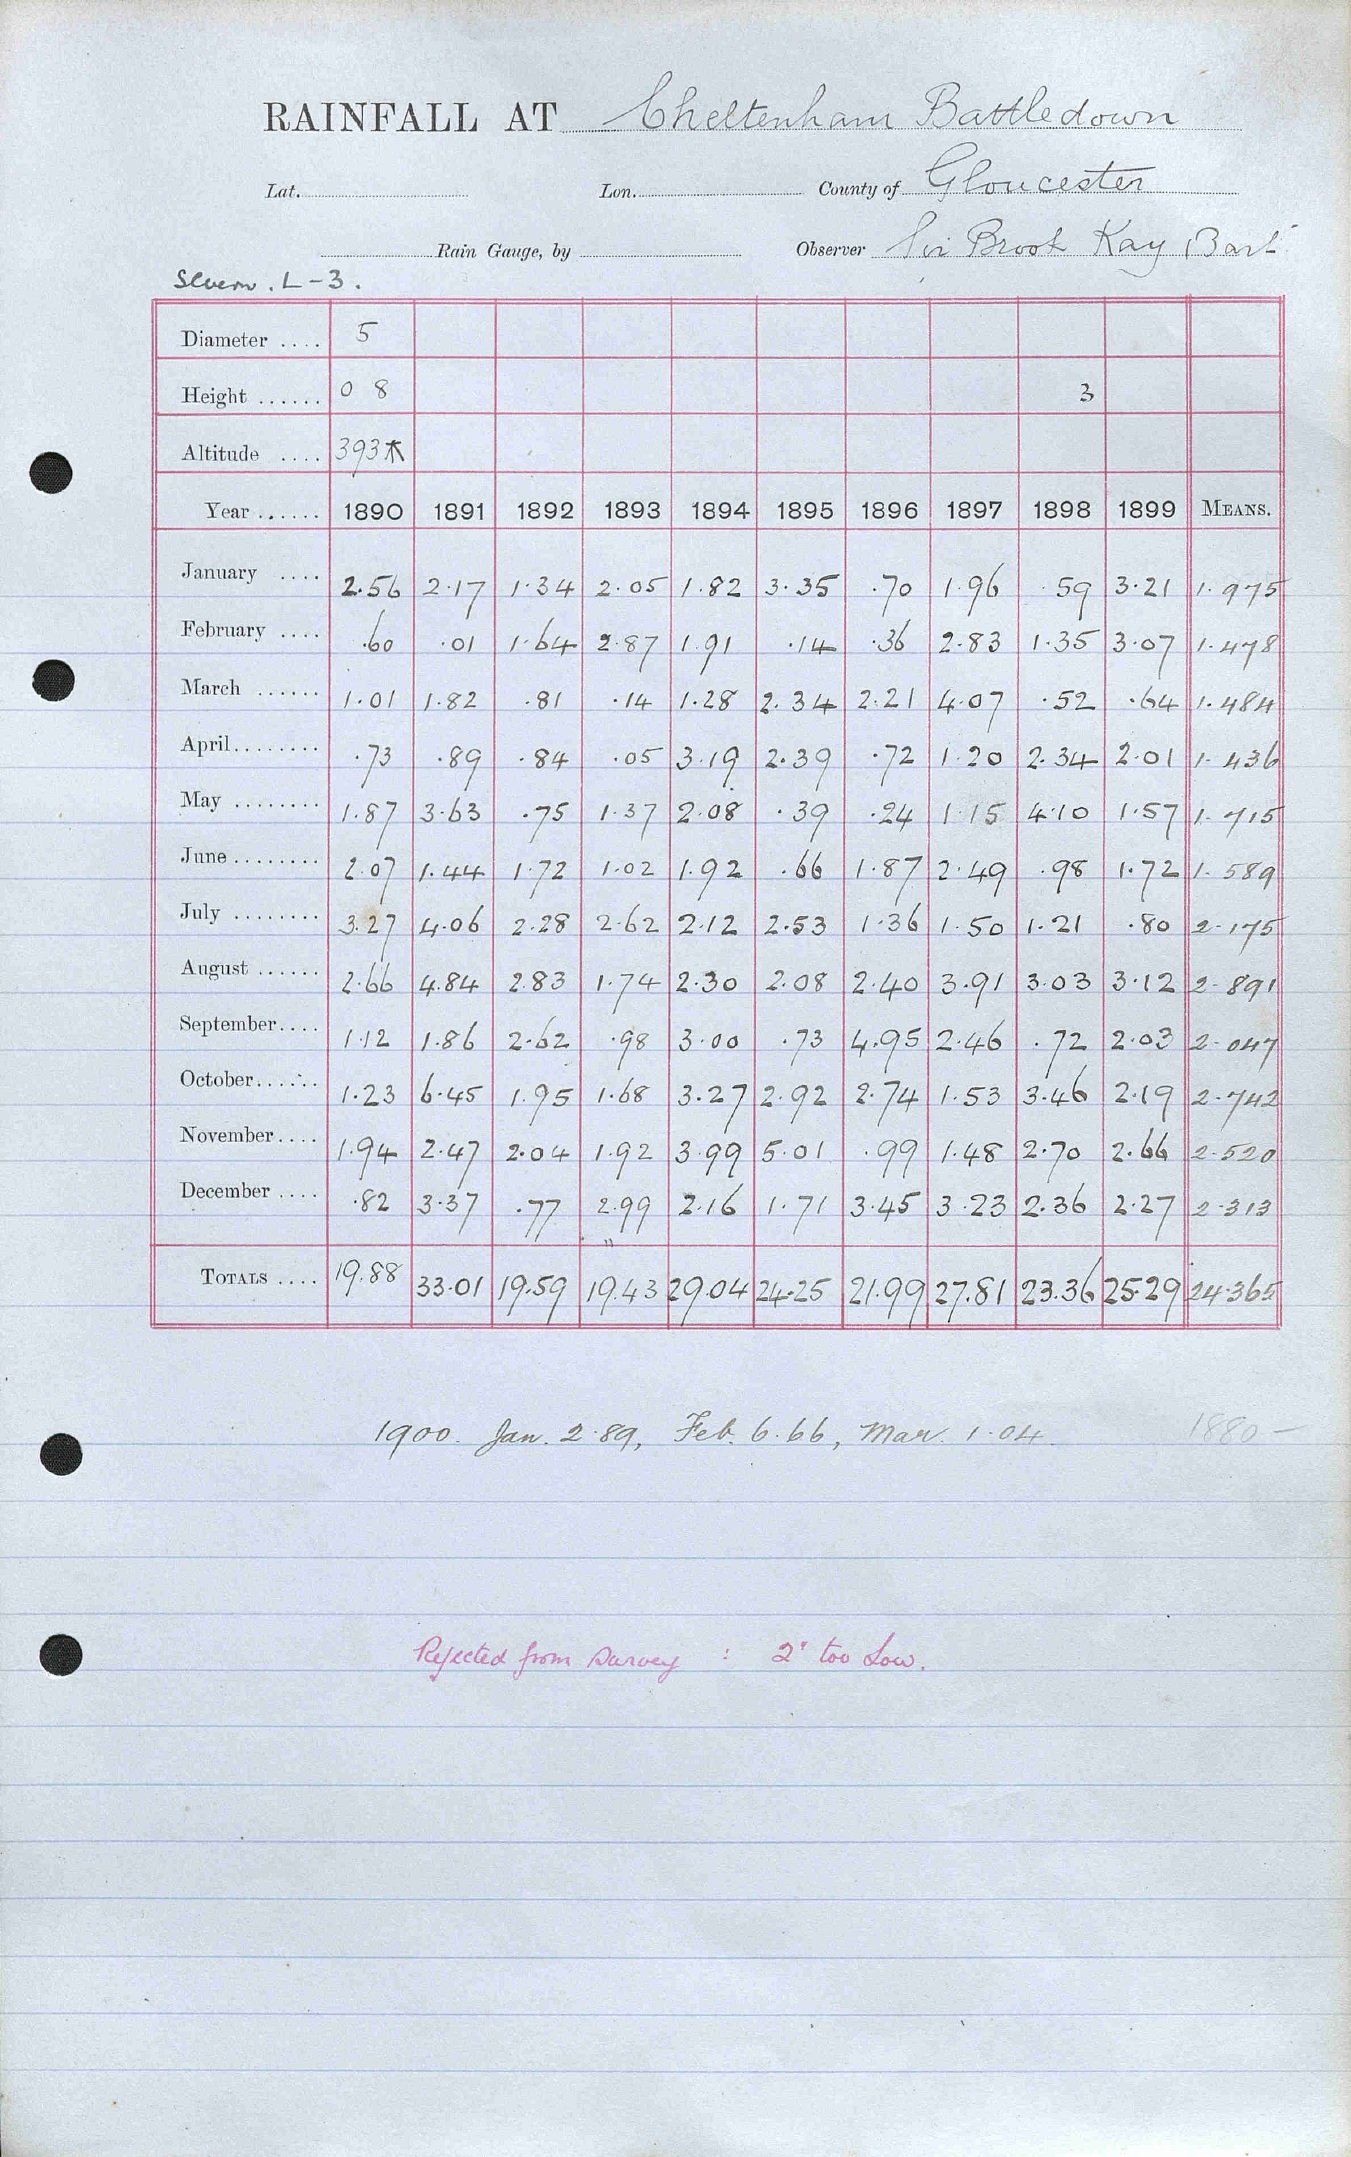 RAINFALL AT Cheltenham Battledown
Lat. Lon. County of Gloucester
Rain Gauge, by Observer Sir Brook Kay Bart
Severn. L-3.
Diameter .... 5
Height ...... 0 8 3
Altitude .... 393
Year ...... 1890 1891 1892 1893 1894 1895 1896 1897 1898 1899 MEANS.
January .... 2.56 2.17 1.34 2.05 1.82 3.35 .70 1.96 .59 3.21 1.975
February .... .60 .01 1.64 2.87 1.91 .14 .36 2.83 1.35 3.07 1.478
March ...... 1.01 1.82 .81 .14 1.28 2.34 2.21 4.07 .52 .64 1.484
April........ .73 .89 .84 .05 3.19 2.39 .72 1.20 2.34 2.01 1.436
May ........ 1.87 3.63 .75 1.37 2.08 .39 .24 1.15 4.10 1.57 1.715
June ........ 2.07 1.44 1.72 1.02 1.92 .66 1.87 2.49 .98 1.72 1.589
July ........ 3.27 4.06 2.28 2.62 2.12 2.53 1.36 1.50 1.21 .80 2.175
August ...... 2.66 4.84 2.83 1.74 2.30 2.08 2.40 3.91 3.03 3.12 2.891
September.... 1.12 1.86 2.62 .98 3.00 .73 4.95 2.46 .72 2.03 2.047
October...... 1.23 6.45 1.95 1.68 3.27 2.92 2.74 1.53 3.46 2.19 2.742
November.... 1.94 2.47 2.04 1.92 3.99 5.01 .99 1.48 2.70 2.66 2.520
December .... .82 3.37 .77 2.99 2.16 1.71 3.45 3.23 2.36 2.27 2.313
TOTALS .... 19.88 33.01 19.59 19.43 29.04 24.25 21.99 27.81 23.36 25.29 24.365
1900. Jan. 2.89, Feb. 6.66, Mar. 1.04. 1880 -
Rejected from Survey : 2" too Low.